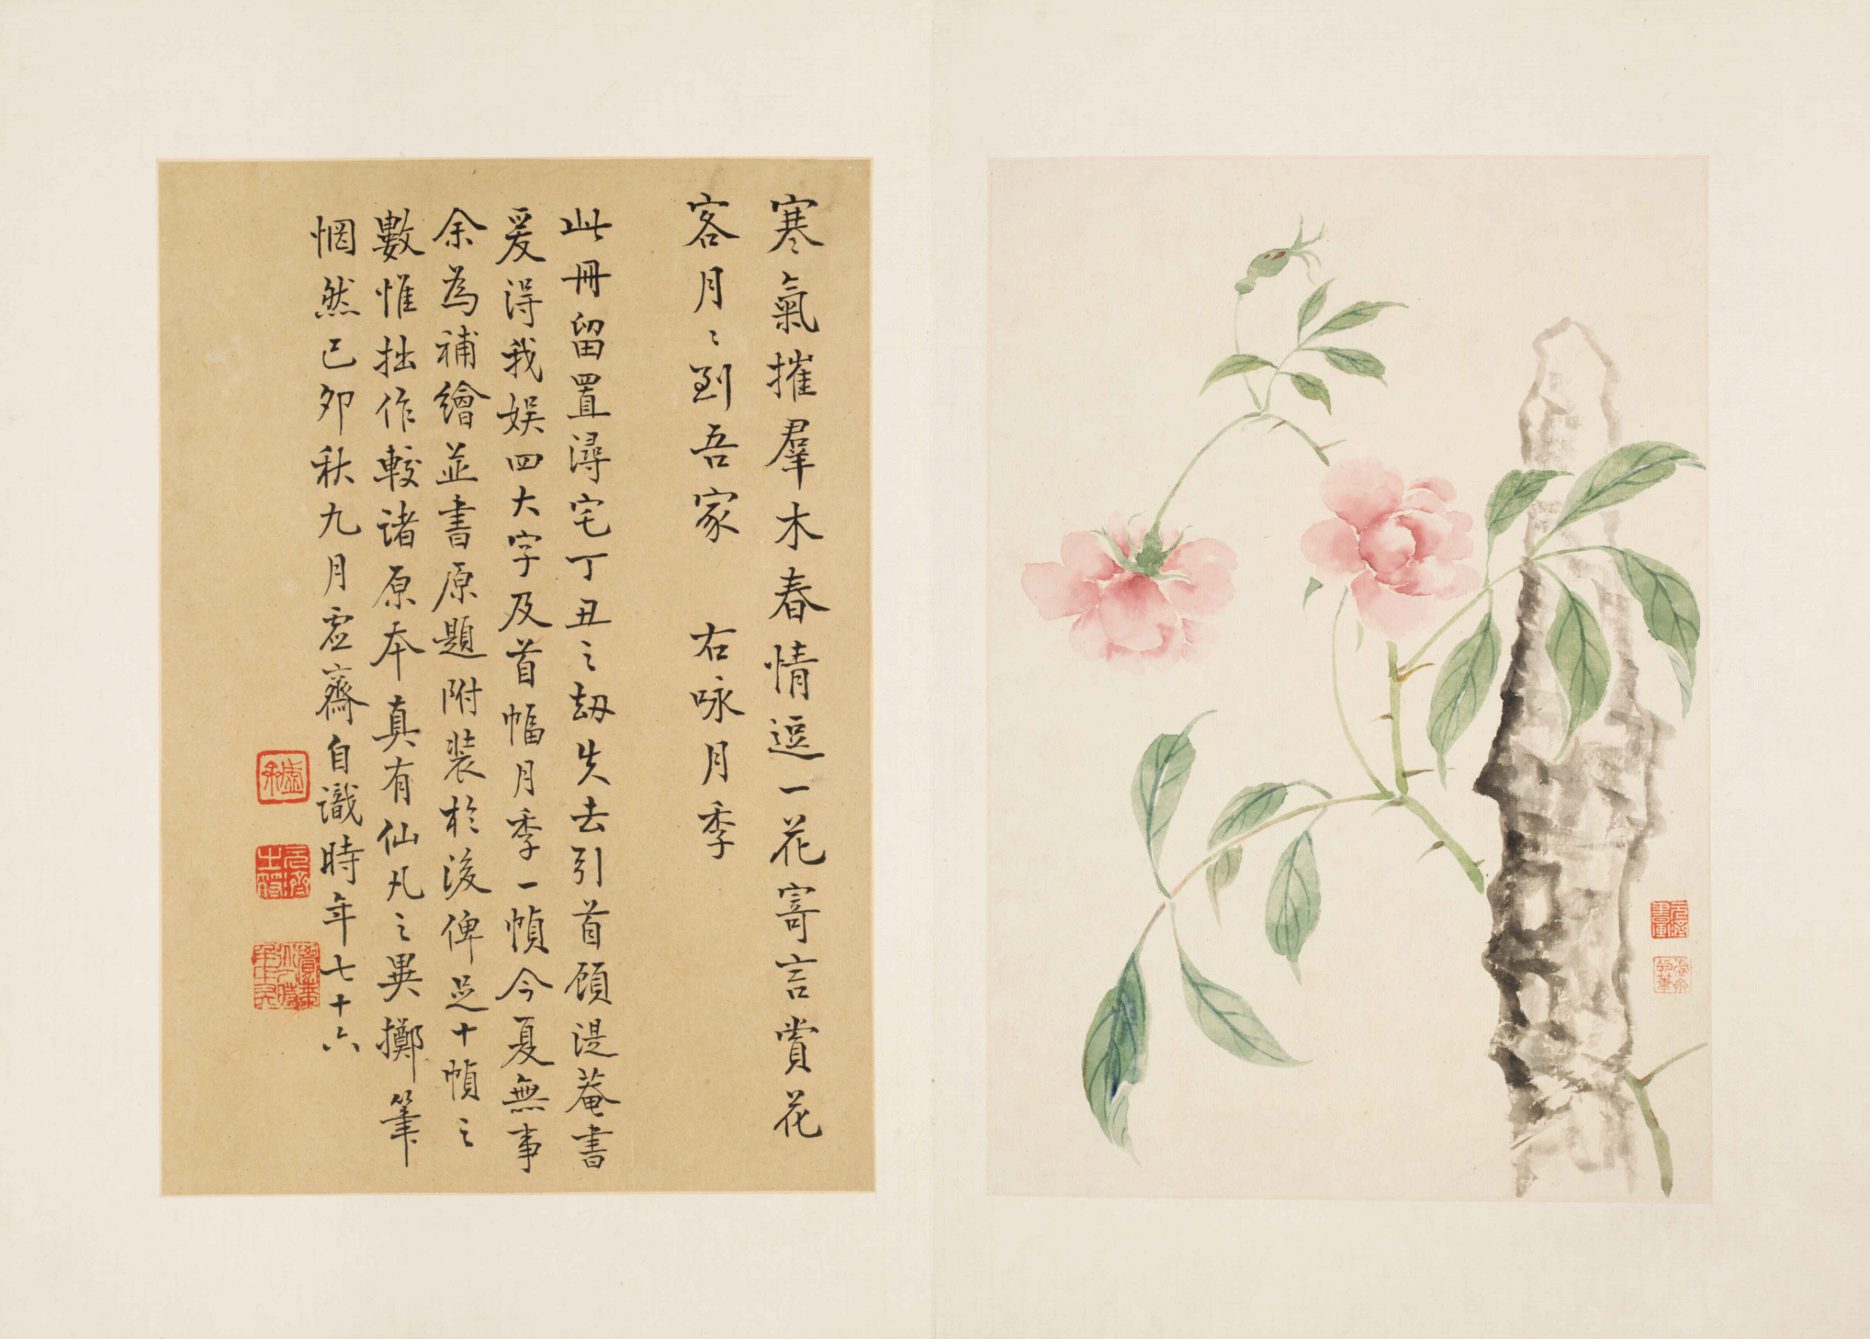 寒氣摧羣木春情逗一花寄言賞花
客月〻到吾家　右咏月季
此冊留置潯宅丁丑之刼失去引首顧湜菴書
爰得我娛四大字及首幅月季一幀今夏無事
余為補繪並書原題附裝於後俾足十幀之
數惟拙作較諸原本真有仙凡之異擲筆
惘然己卯秋九月虛齋自識時年七十六